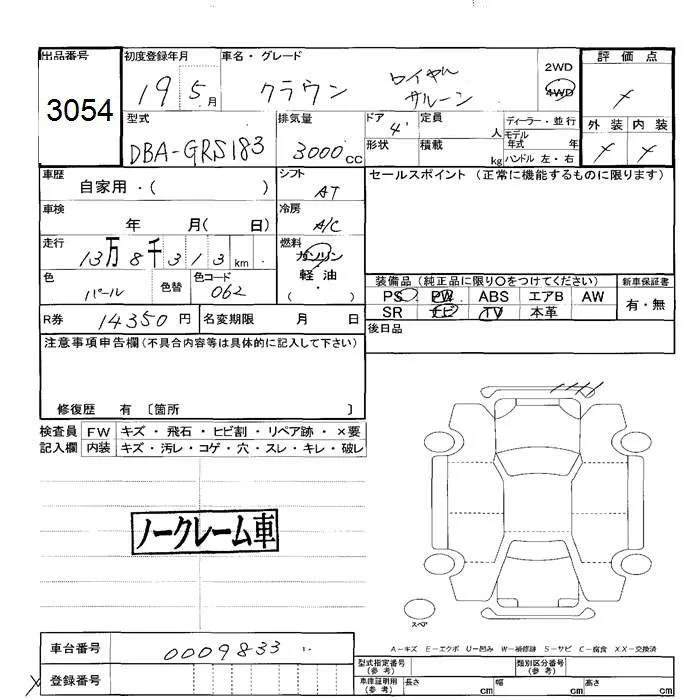 出品番号 初度登録年月 車名・グレード 2WD 評価点
3054 19 5月 クラウン ロイヤル サルーン 4WD
型式 排気量 ドア 定員 ディーラー・並行 外装 内装
DBA-GRS183 3000cc 4 人 モデル年式 年
形状 積載 kg ハンドル 左・右
車歴 自家用・( ) シフト AT セールスポイント(正常に機能するものに限ります)
車検 年 月( 日) 冷房 A/C
走行 13万8千313km 燃料 ガソリン
軽油
( ・ )
色 パール 色替 色コード 062
装備品(純正品に限り○をつけてください) 新車保証書
PS PW ABS エアB AW 有・無
SR TV 本革
R券 14350円 名変期限 月 日 後日品
注意事項申告欄(不具合内容等は具体的に記入して下さい)
修復歴 有 〔箇所 〕
検査員 FW キズ・飛石・ヒビ割・リペア跡・×要
記入欄 内装 キズ・汚レ・コゲ・穴・スレ・キレ・破レ
ノークレーム車
スペア
A-キズ E-エクボ U-凹み W-補修跡 S-サビ C-腐食 XX-交換済
車台番号 0009833
登録番号
型式指定番号(参考) 類別区分番号(参考)
車庫証明用(参考) 長さ cm 幅 cm 高さ cm